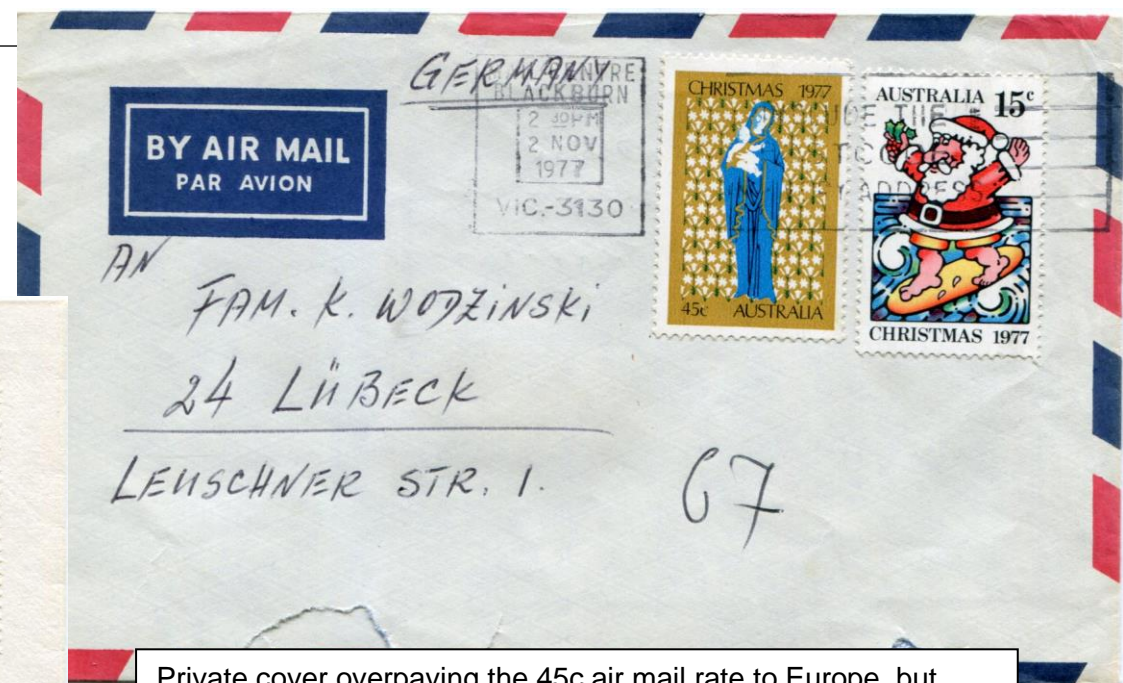 GERMANY
BY AIR MAIL
PAR AVION
BLACKBURN
2 30PM
2 NOV
1977
VIC.-3130
CHRISTMAS 1977
45c AUSTRALIA
AUSTRALIA 15c
CHRISTMAS 1977
AN
FAM. K. WODZINSKI
24 LÜBECK
LEUSCHNER STR. 1.
67
Private cover overpaying the 45c air mail rate to Europe, but